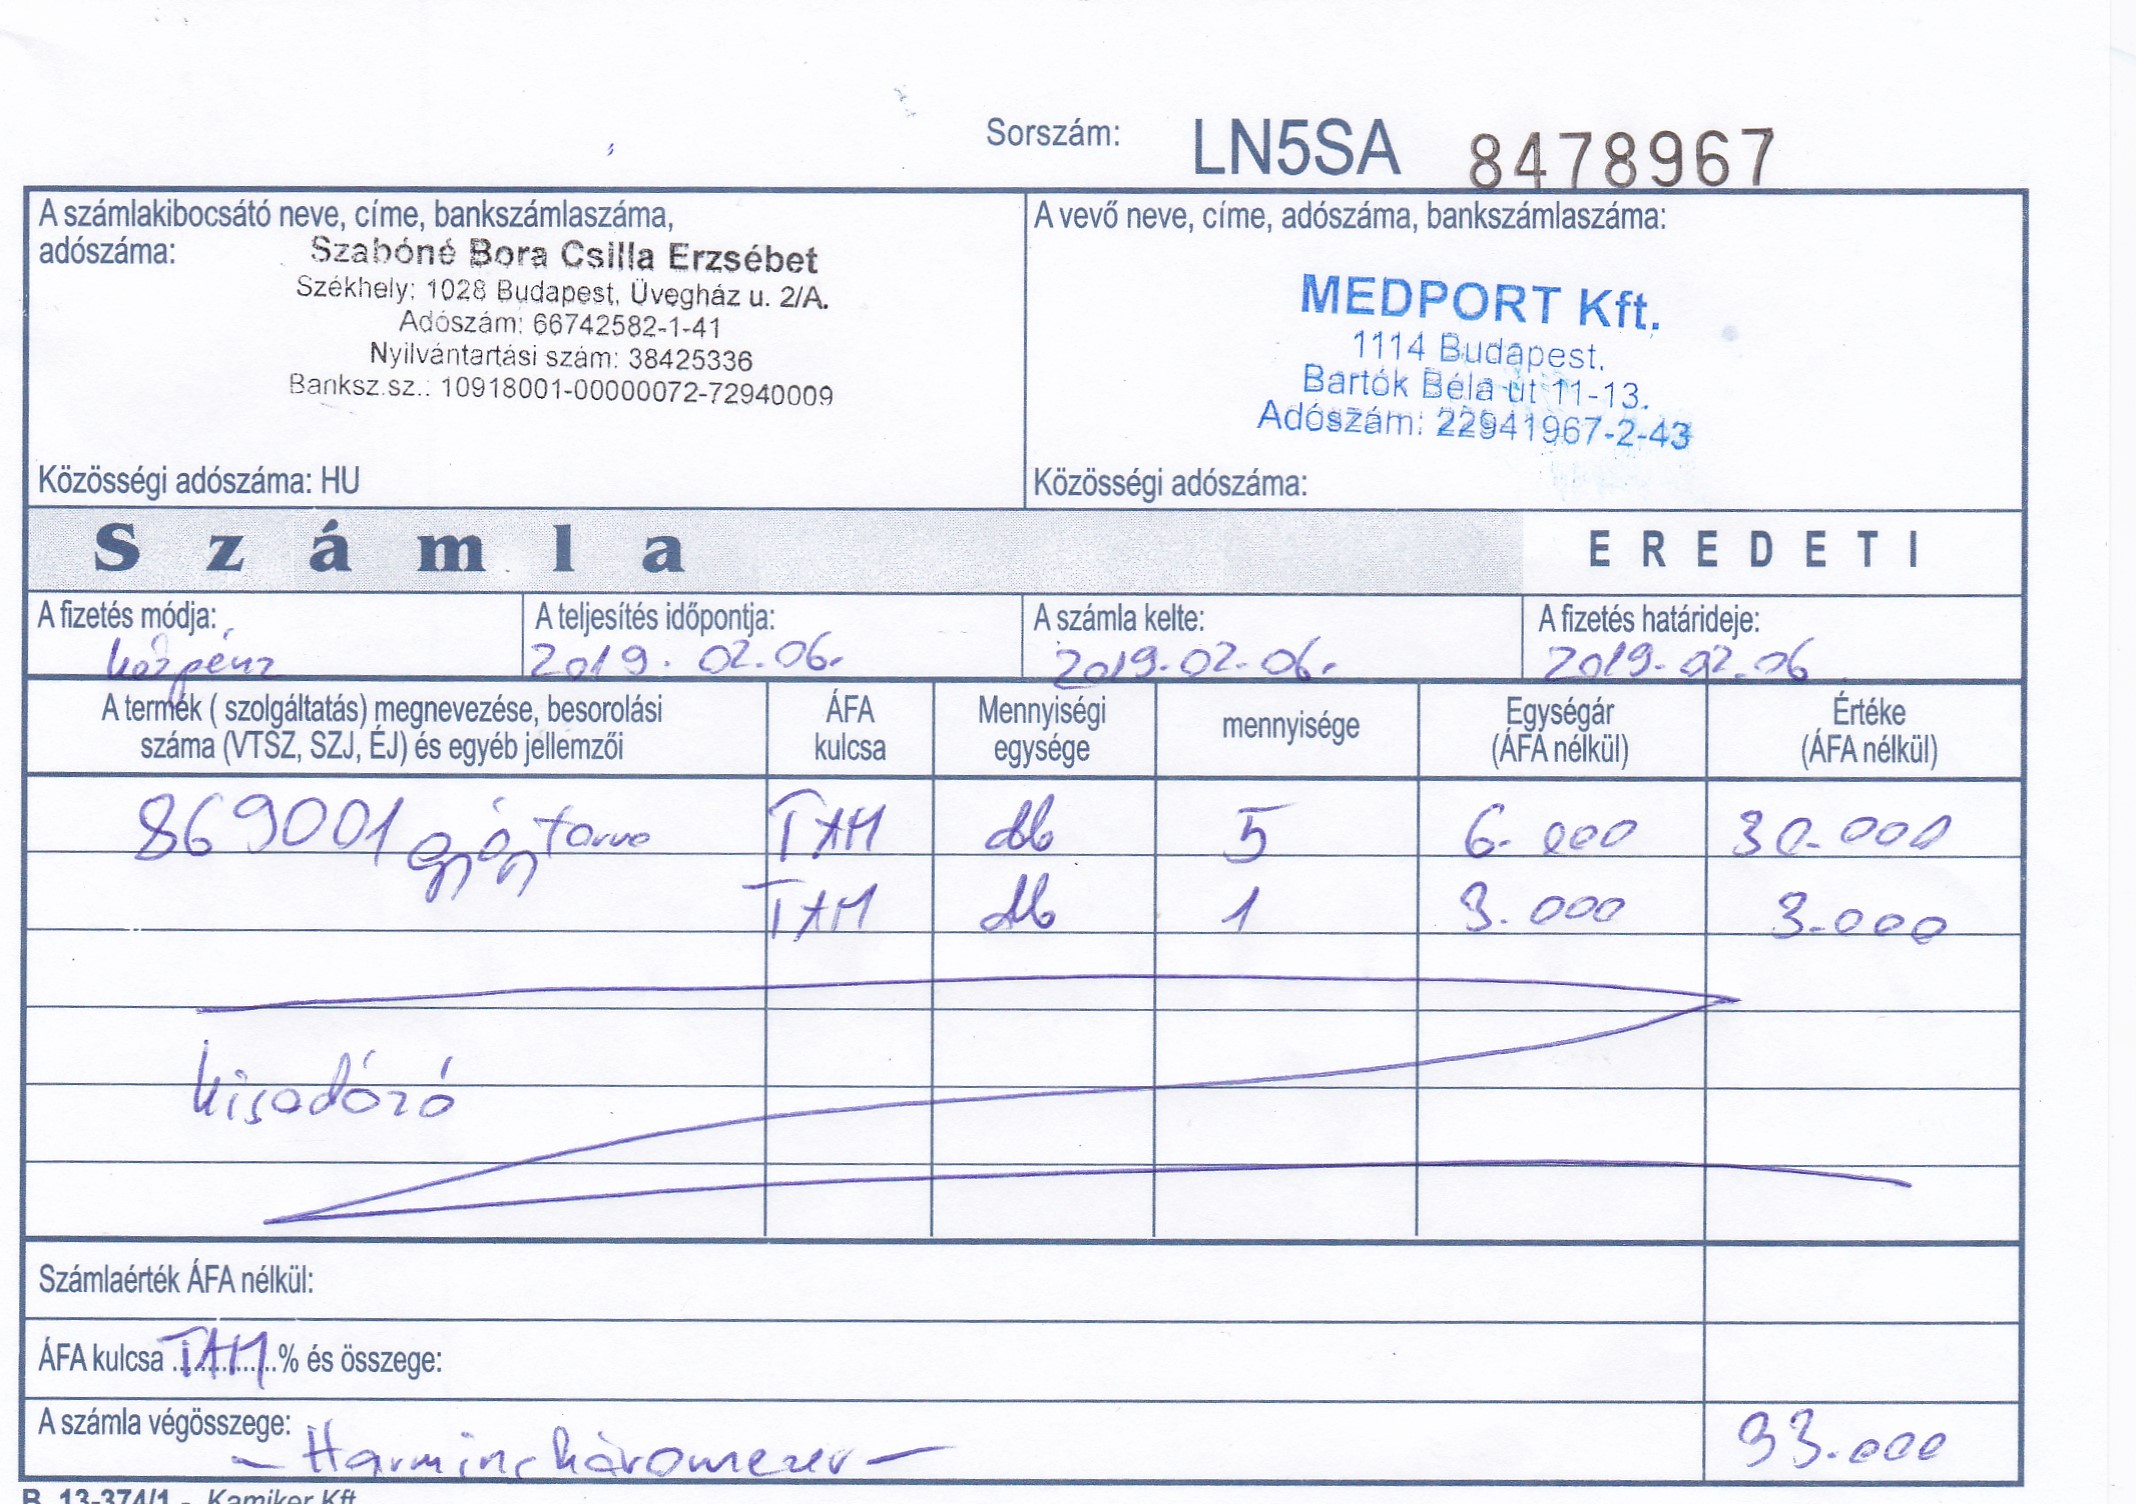 Sorszám: LN5SA 8478967
A számlakibocsátó neve, címe, bankszámlaszáma,
adószáma:
Szabóné Bora Csilla Erzsébet
Székhely: 1028 Budapest, Üvegház u. 2/A.
Adószám: 66742582-1-41
Nyilvántartási szám: 38425336
Banksz.sz.: 10918001-00000072-72940009
Közösségi adószáma: HU
A vevő neve, címe, adószáma, bankszámlaszáma:
MEDPORT Kft.
1114 Budapest,
Bartók Béla út 11-13.
Adószám: 22941967-2-43
Közösségi adószáma:
Számla EREDETI
A fizetés módja: A teljesítés időpontja: A számla kelte: A fizetés határideje:
készpénz 2019.02.06. 2019.02.06. 2019.02.06
A termék ( szolgáltatás) megnevezése, besorolási ÁFA Mennyiségi mennyisége Egységár Értéke
száma (VTSZ, SZJ, ÉJ) és egyéb jellemzői kulcsa egysége (ÁFA nélkül) (ÁFA nélkül)
869001 gyógytorna TAM db 5 6.000 30.000
TAM db 1 3.000 3.000
kisadózó
Számlaérték ÁFA nélkül:
ÁFA kulcsa TAM % és összege:
A számla végösszege: - Harmincháromezer - 33.000
B. 13-374/1 - Kamiker Kft